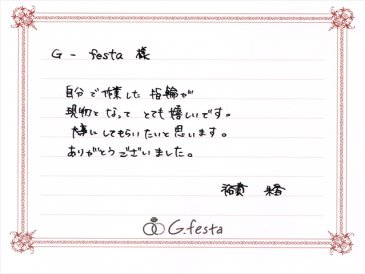 G - festa 様
自分で作業した指輪が
現物となって とても嬉しいです。
大事にしてもらいたいと思います。
ありがとうございました。
G.festa